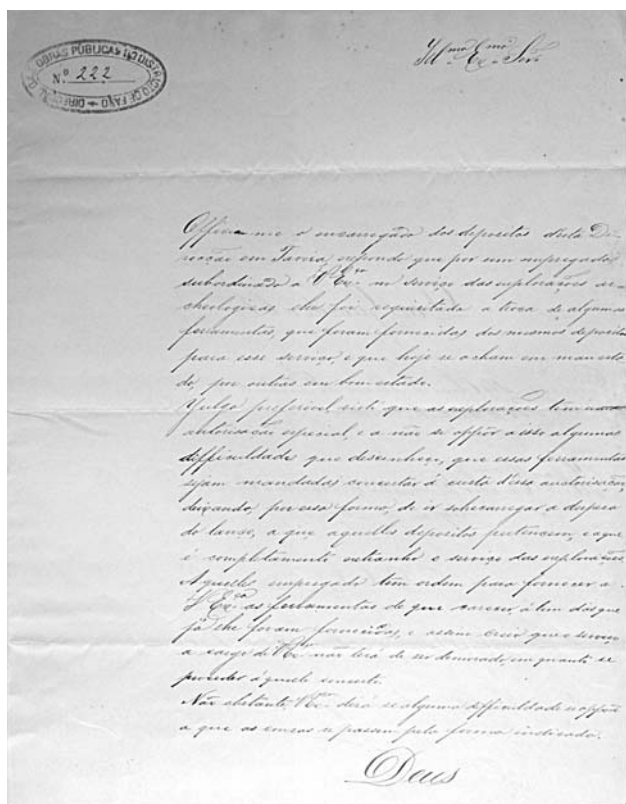 OBRAS PUBLICAS DO DISTRICTO DE FARO
DIRECÇÃO
Nº 222
Illmo. Exmo. Snr.
Officia-me o encarregado dos depositos desta Di-
recção em Tavira, que por um empregado
subordinado a V. Exa. no serviço das explorações ar-
cheologicas, lhe foi requisitada a troca de algumas
ferramentas, que foram fornecidas dos mesmos depositos
para esse serviço, e que hoje se acham em mau esta-
do, por outras em bom estado.
Julgo preferivel visto que as explorações tem
autorisação especial, e a não se oppôr a isso alguma
difficuldade que desconheço, que essas ferramentas
sejam mandadas concertar á custa d'essa autorisação,
deixando, por essa forma, de ir sobrecarregar a despeza
do lanço, a que aquelles depositos pertencem, e a que
é completamente estranho o serviço das explorações.
Aquelle empregado tem ordem para fornecer a
V. Exa. as ferramentas de que carecer, alem das que
já lhe foram fornecidas, e assim creio que o serviço
a cargo de V. Exa. não terá de ser demorado, em quanto se
proceder áquelle concerto.
Não obstante, V. Exa. dirá se alguma difficuldade se oppõe
a que as cousas se passem pela forma indicada.
Deus